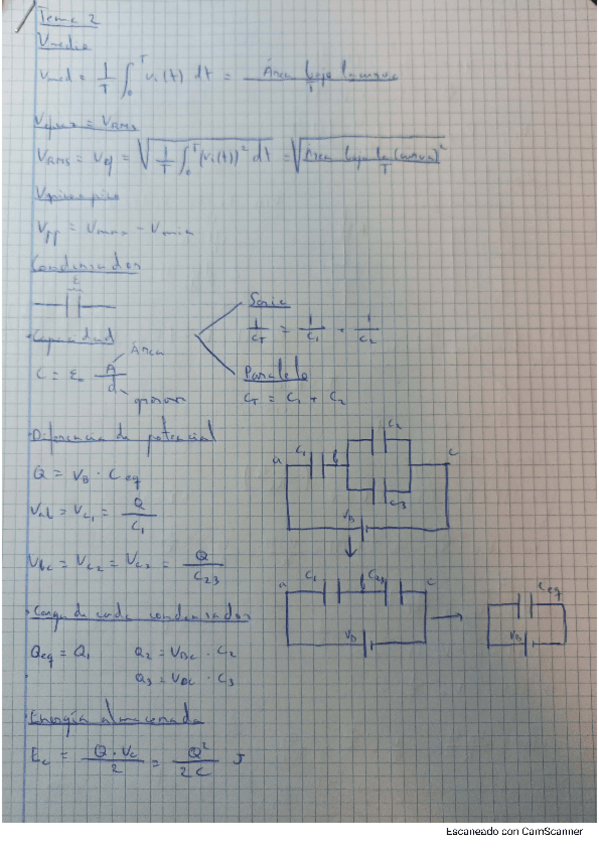 Tema 2
Vmedio
Vmed = 1/T ∫₀ᵀ vi(t) dt = Área bajo la curva / T
Veficaz = VRMS
VRMS = Vef = √(1/T ∫₀ᵀ (vi(t))² dt) = √(Área bajo la (curva)² / T)
Vpico a pico
Vpp = Vmax - Vmin
Condensador
ε
· Capacidad
C = ε₀ A/d
Área
grosor
Serie
1/CT = 1/C1 + 1/C2
Paralelo
CT = C1 + C2
· Diferencia de potencial
Q = VB · Ceq
Vab = VC1 = Q/C1
Vbc = VC2 = VC3 = Q/C23
a C1 b C2 C3 c VB
a C1 b C23 c VB
Ceq VB
· Carga de cada condensador
Qeq = Q1 Q2 = VBC · C2
Q3 = VBC · C3
· Energía almacenada
Ec = Q · Vc / 2 = Q² / 2C J
Escaneado con CamScanner